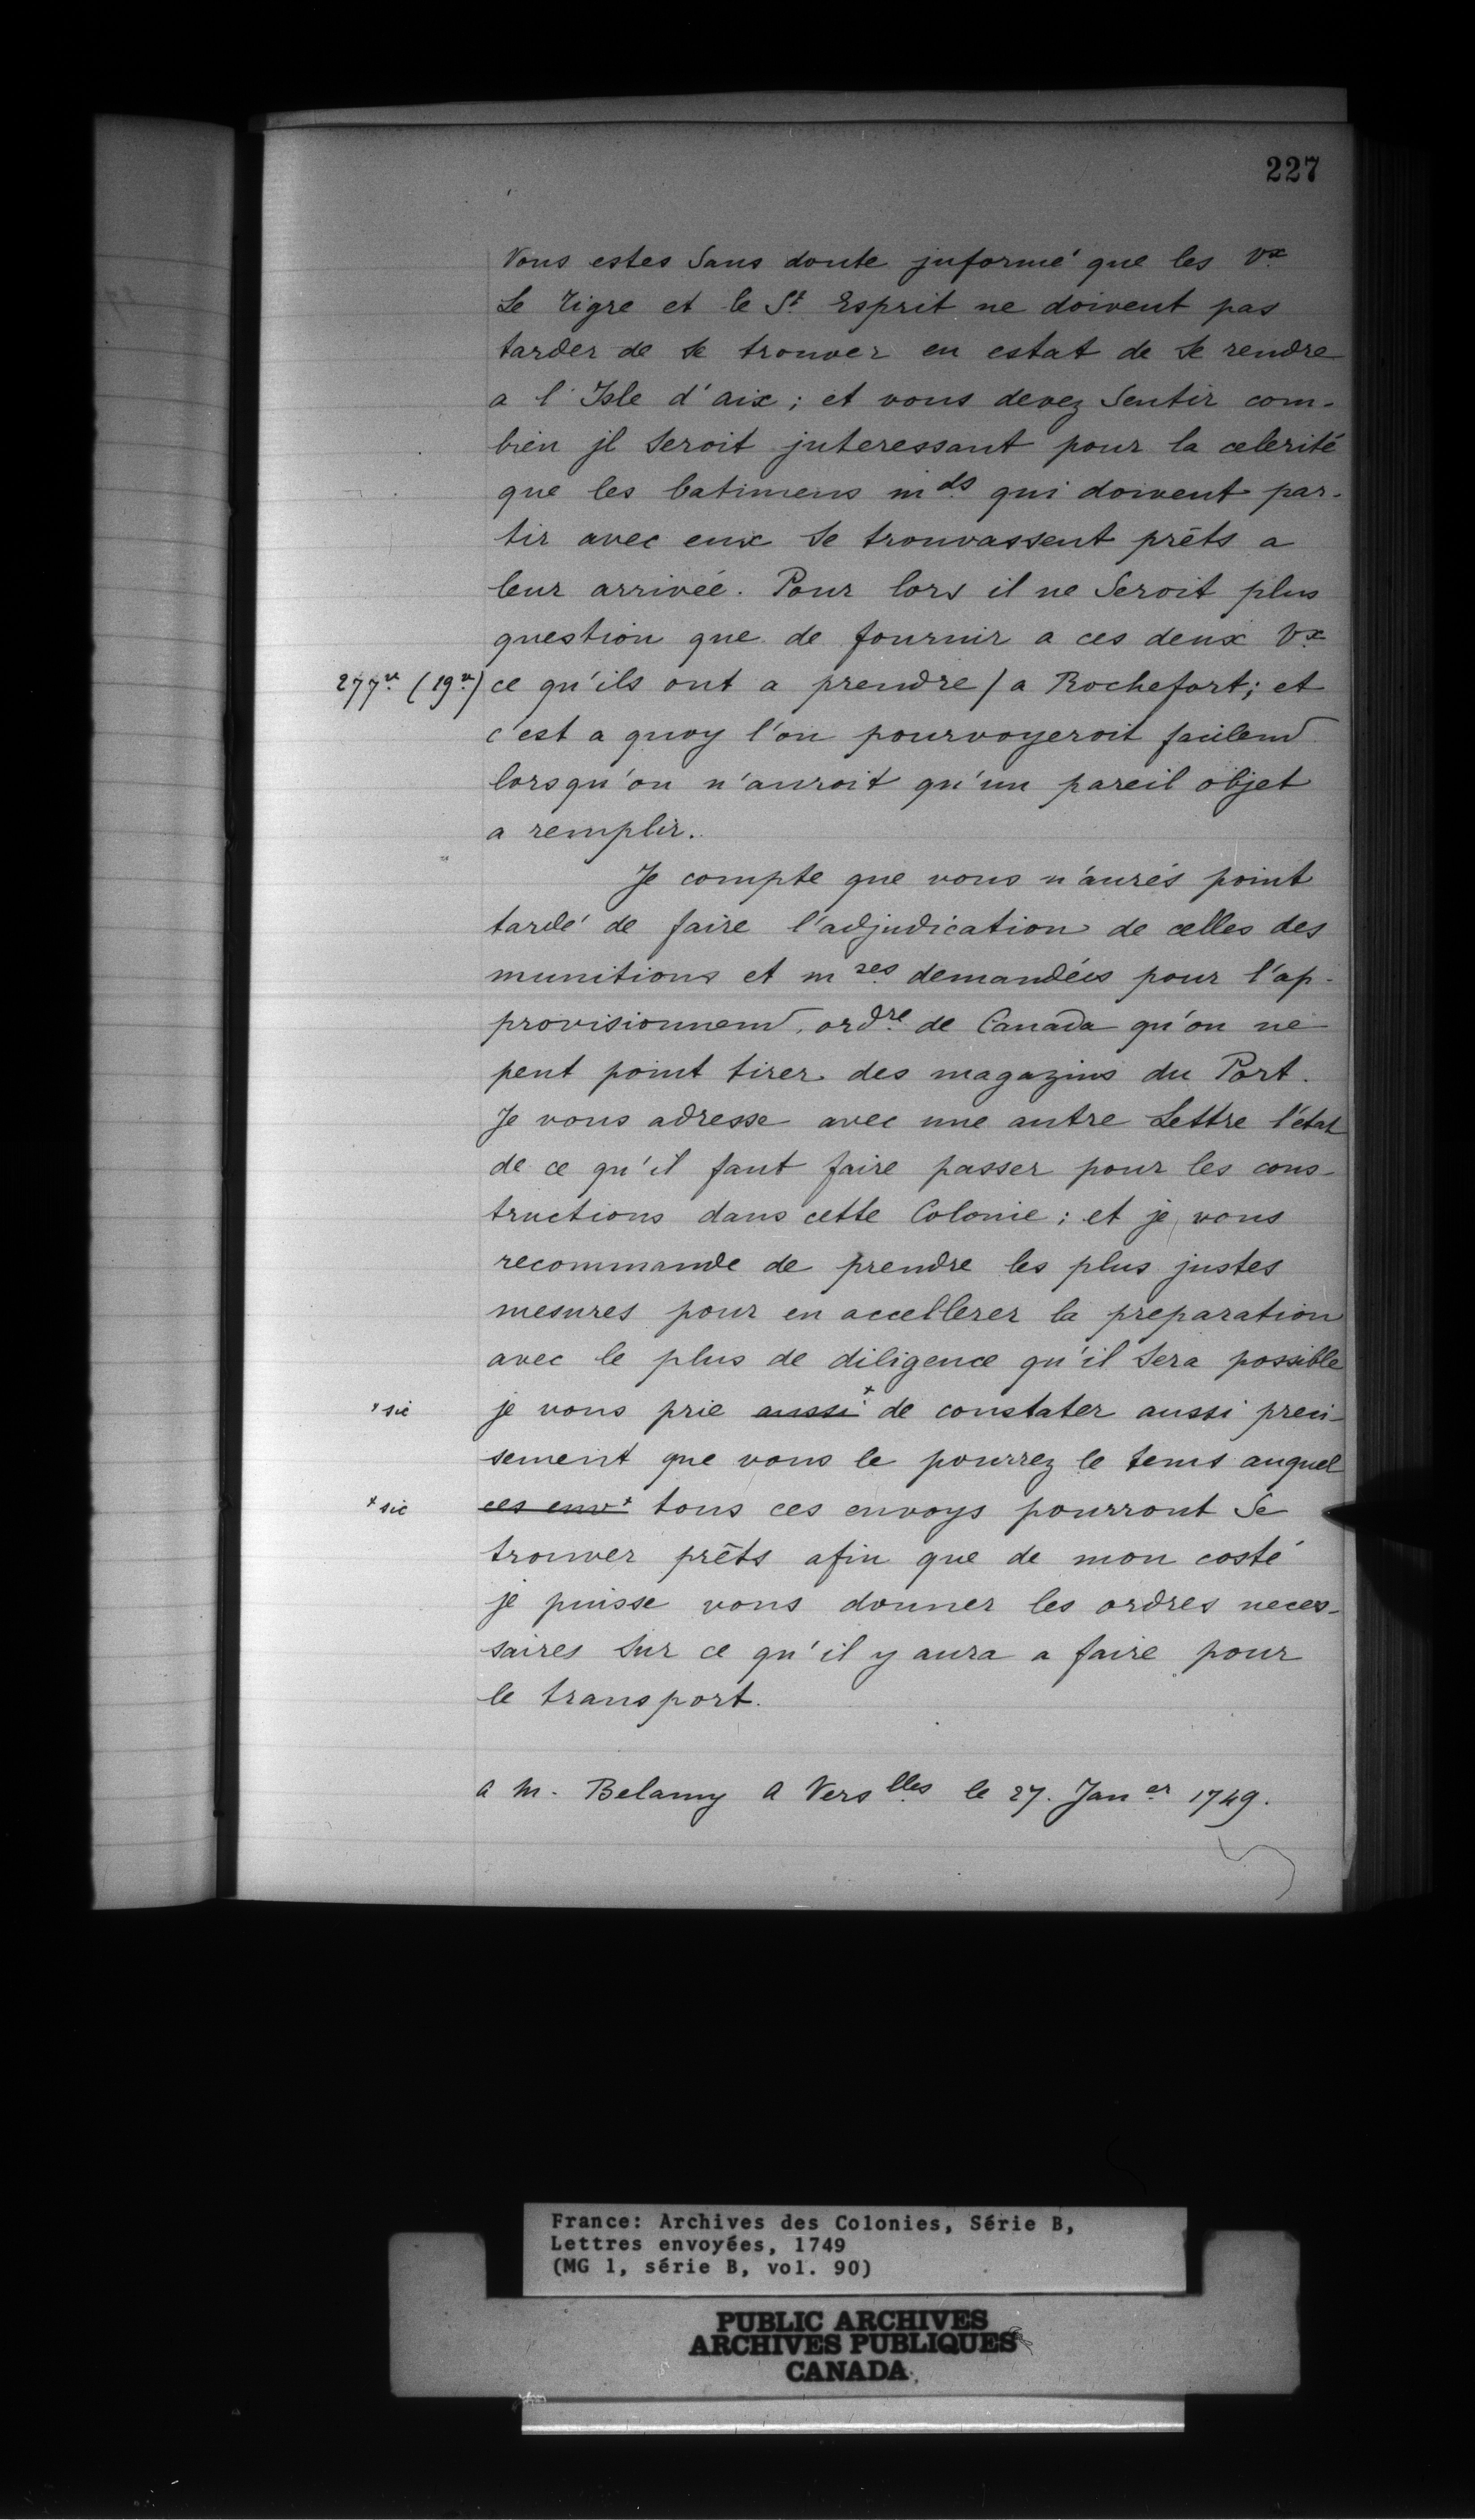 227
Vous estes Sans doute jnformé que les Vx
Le Tigre et le St Esprit ne doivent pas
tarder de se trouver en estat de se rendre
a l'Isle d'aix; et vous devez Sentir com-
bien jl seroit jnteressant pour la celerité
que les batimens mds qui doivent par-
tir avec eux se trouvassent prêts a
leur arrivée. Pour lors il ne Seroit plus
question que de fournir a ces deux Vx
277v. (19v.) ce qu'ils ont a prendre / a Rochefort; et
c'est a quoy l'on pourvoyeroit facilemt
lorsqu'on n'auroit qu'un pareil objet
a remplir.
Je compte que vous n'aurés point
tardé de faire l'adjudication de celles des
munitions et mses demandées pour l'ap-
provisionnemt. ordre de Canada qu'on ne
peut point tirer des magazins du Port.
Je vous adresse avec une autre Lettre l'état
de ce qu'il faut faire passer pour les cons-
tructions dans cette Colonie; et je vous
recommande de prendre les plus justes
mesures pour en accellerer la preparation
avec le plus de diligence qu'il sera possible
+ sic je vous prie aussi+ de constater aussi preci-
sement que vous le pourrez le tems auquel
+ sic ces env+ tous ces envoys pourront Se
trouver prêts afin que de mon costé
je puisse vous donner les ordres neces-
saires sur ce qu'il y aura a faire pour
le transport.
a M. Belamy A Verslles le 27. Janer 1749.
France: Archives des Colonies, Série B,
Lettres envoyées, 1749
(MG 1, série B, vol. 90)
PUBLIC ARCHIVES
ARCHIVES PUBLIQUES
CANADA